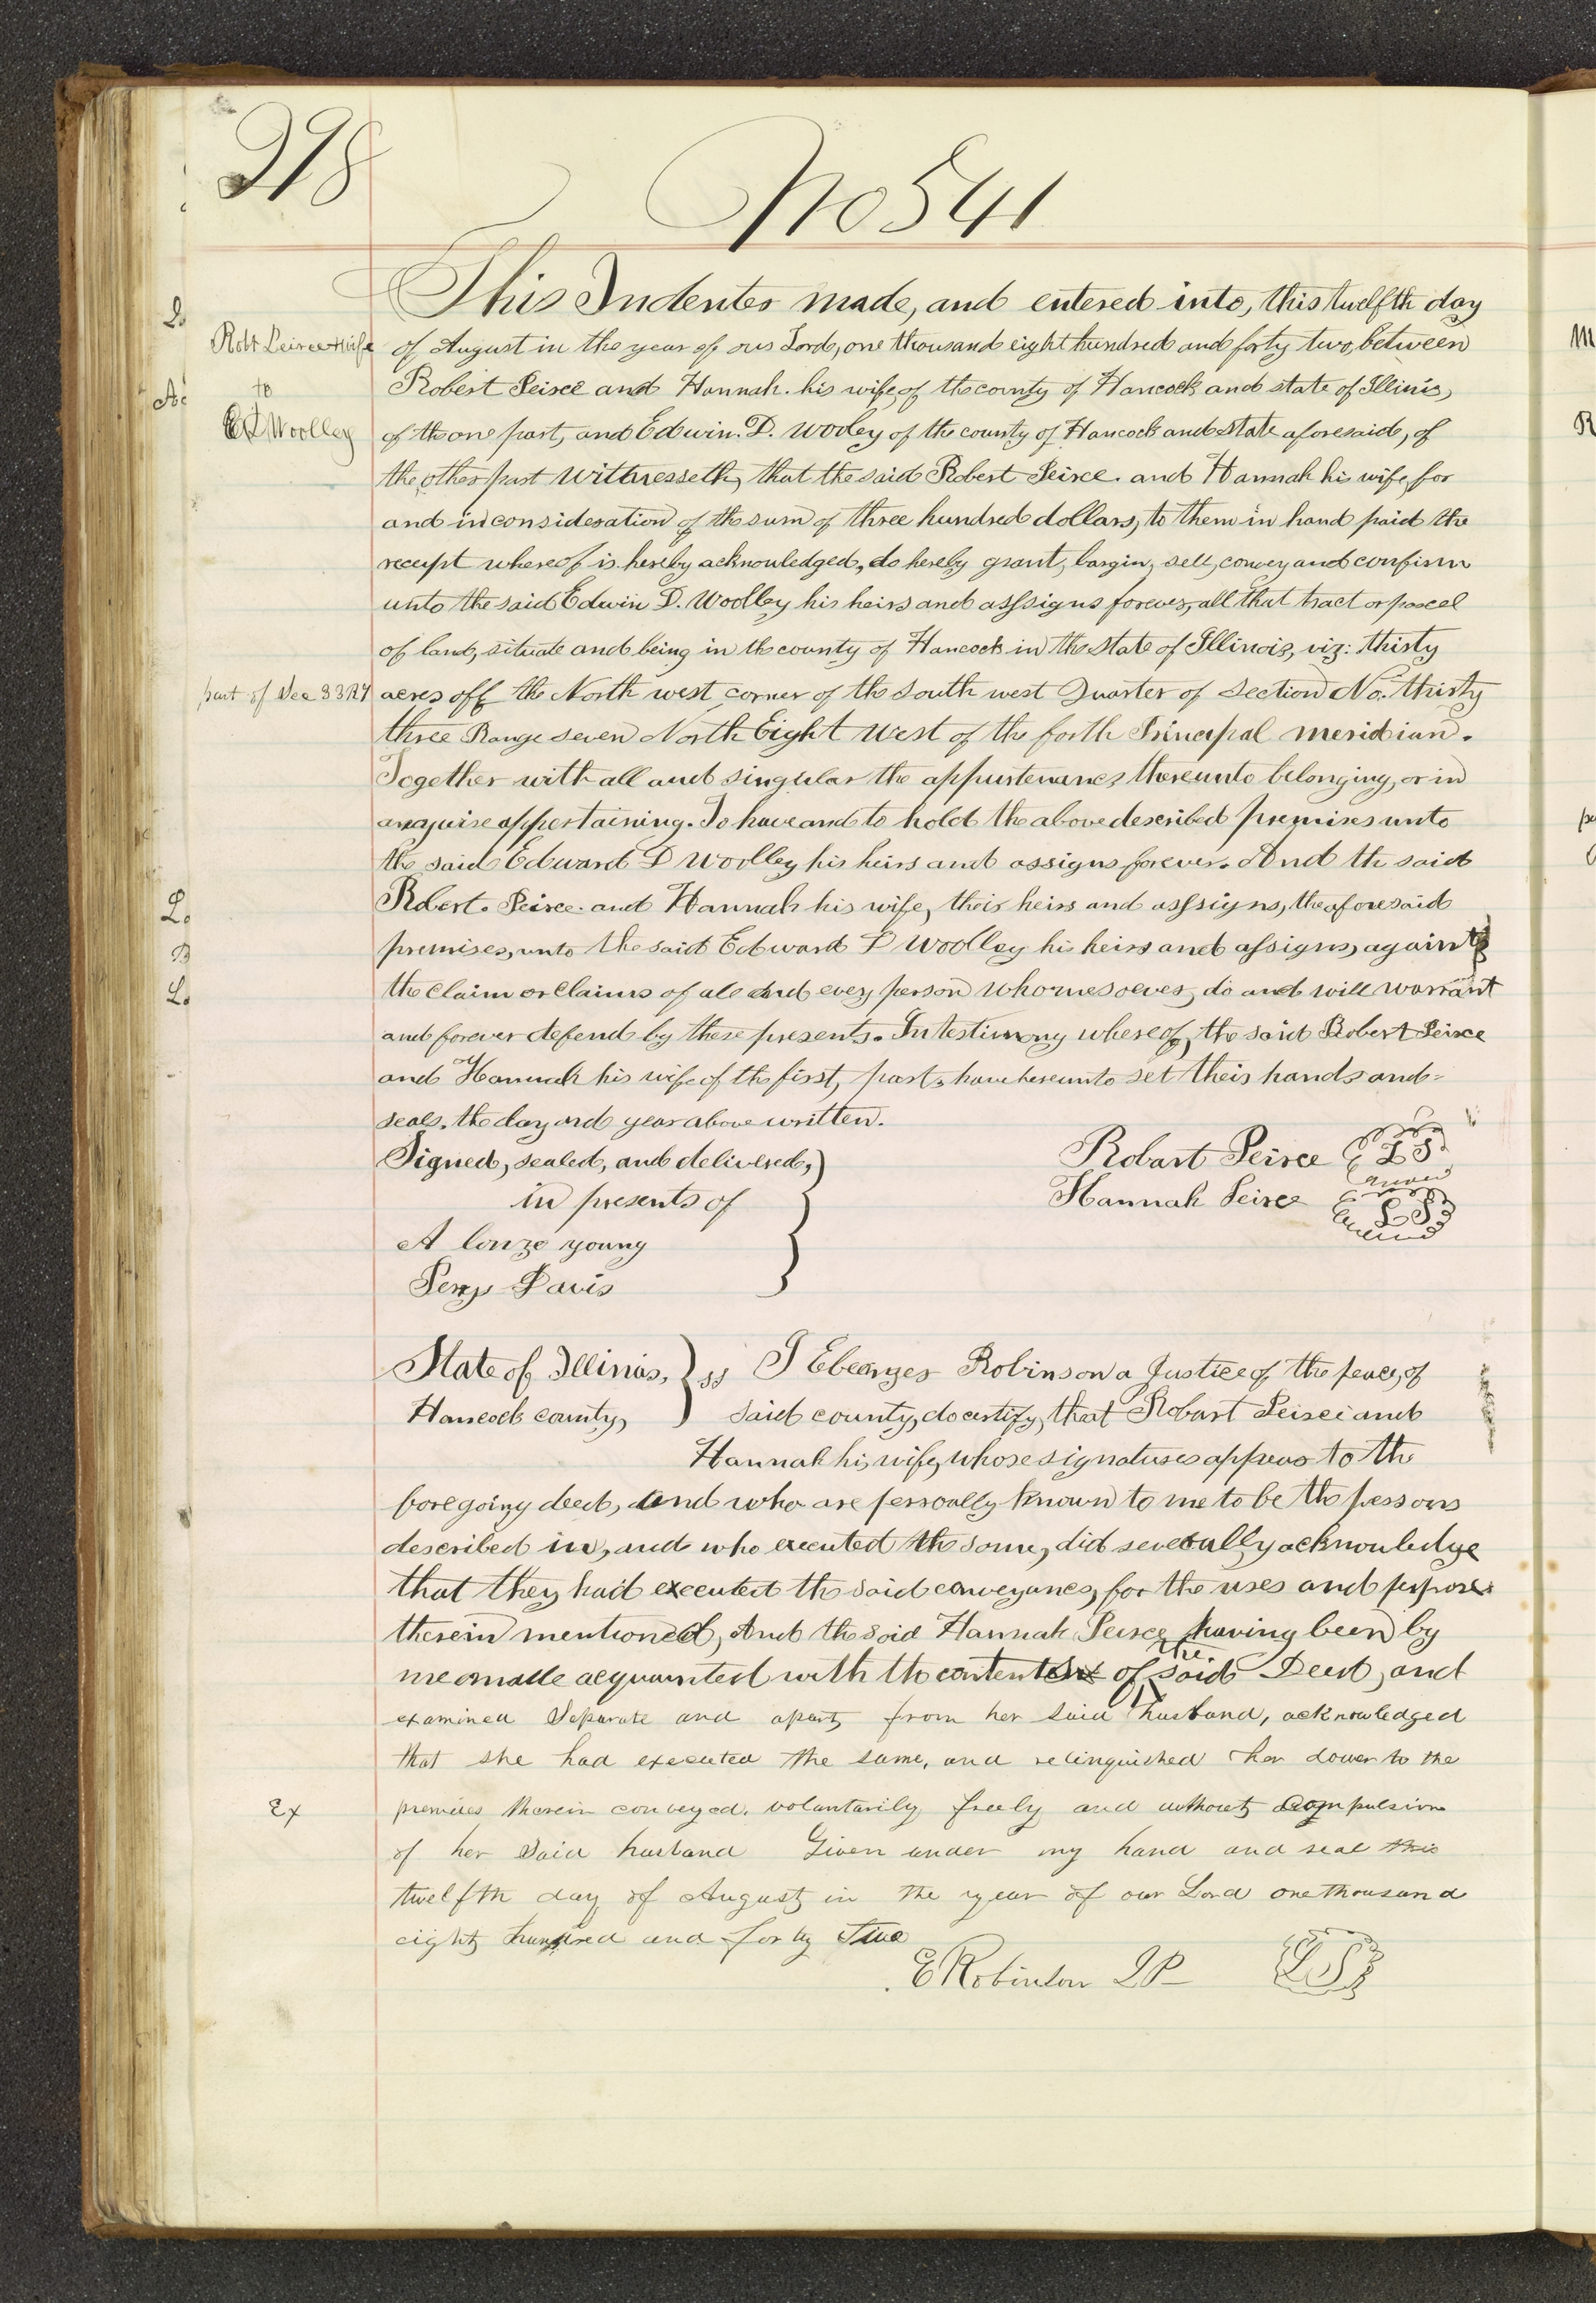 298
No 541
This Indenter made, and entered into, this twelfth day
Robt Peirce & Wife
of August in the year of our Lord, one thousand eight hundred and forty two, between
to
Robert Peirce and Hannah. his wife, of the county of Hancock and state of Illinis,
E D Woolley
of the one part, and Edwin. D. Wooley of the county of Hancock and state aforesaid, of
the other part Wittnesseth, that the said Robert Peirce. and Hannah his wife, for
and in consideration of the sum of three hundred dollars, to them in hand paid the
receipt whereof is hereby acknowledged, do hereby grant, bargin, sell, convey and confirm
unto the said Edwin D. Woolley his heirs and assigns forever, all that tract or parcel
of land, situate and being in the county of Hancock in the State of Illinois, viz: thirty
part of Sec 33 R7
acres off the North west corner of the south west Quarter of Section No. thirty
three Range seven North Eight West of the forth Principal meridian.
Together with all and singular the appurtenances thereunto belonging, or in
anywise appertaining. To have and to hold the above described premises unto
the said Edward D Woolley his heirs and assigns forever. And the said
Robert. Peirce. and Hannah his wife, their heirs and assigns, the aforesaid
premises, unto the said Edward D Woolley his heirs and assigns, against
the claim or claims of all and every person whomesoever, do and will warrant
and forever defend by these presents. In testimony whereof, the said Robert Peirce
and Hannah his wife of the first, part, have hereunto set their hands and
seals, the day and year above written.
Signed, sealed, and delivered,
in presents of
A lonzo young
Perry Davis
Robart Peirce L S
Hannah Peirce L S
State of Illinios, ss I Ebenezer Robinson a Justice of the peace, of
Hancock county, said county, do certify, that Robart Peirce and
Hannah his wife, whose signatures appear to the
foregoing deed, and who are personally known to me to be the persons
described in, and who executed the same, did severally acknowledge
that they had executed the said conveyance, for the uses and purposes
therein mentioned, And the said Hannah Peirce having been by
me made acquainted with the contents of the said Deed, and
examined Separate and apart, from her said husband, acknowledged
that she had executed the same, and relinquished her dower to the
Ex
premises therein conveyed. voluntarily freely and without compulsion
of her said husband Given under my hand and seal this
twelfth day of August in the year of our Lord one thousand
eight hundred and forty Two
E Robinson J P L S